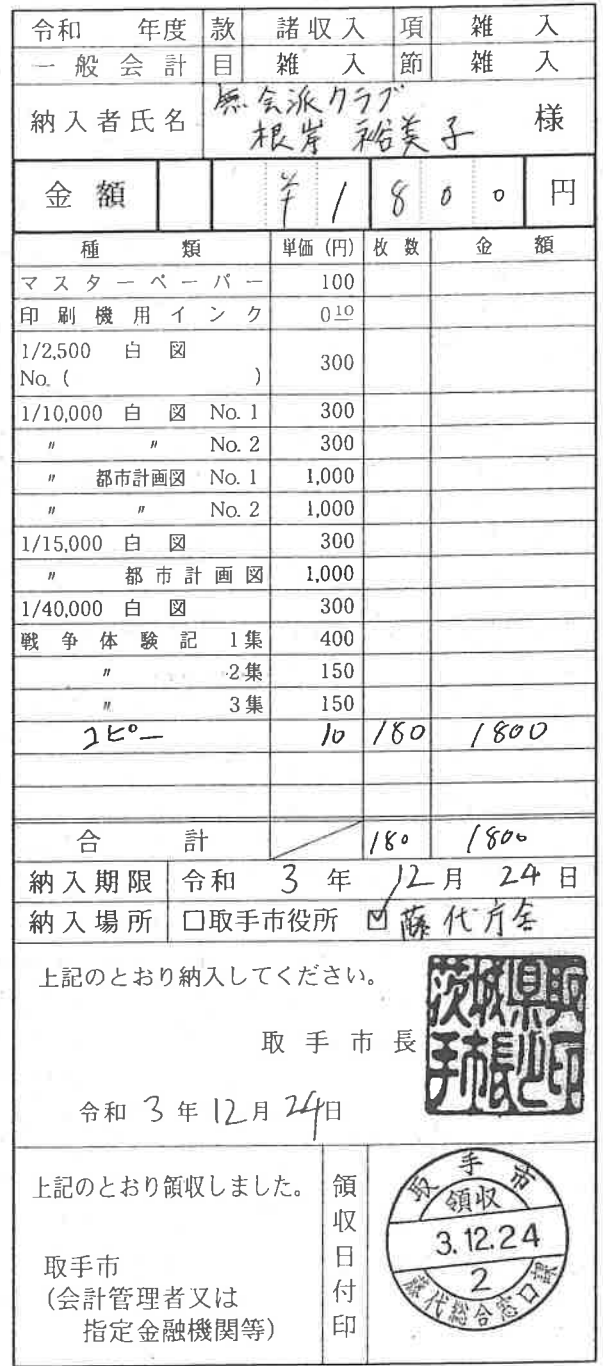 令和　年度 款 諸収入 項 雑入
一般会計 目 雑入 節 雑入
納入者氏名 無会派クラブ
根岸 裕美子 様
金額 ¥1800 円
種類 単価(円) 枚数 金額
マスターペーパー 100
印刷機用インク 0.10
1/2,500 白図
No.(　) 300
1/10,000 白図 No.1 300
〃 〃 No.2 300
〃 都市計画図 No.1 1,000
〃 〃 No.2 1,000
1/15,000 白図 300
〃 都市計画図 1,000
1/40,000 白図 300
戦争体験記 1集 400
〃 2集 150
〃 3集 150
コピー 10 180 1800
合計 180 1800
納入期限 令和 3年 12月 24日
納入場所 □取手市役所 ☑藤代庁舎
上記のとおり納入してください。
取手市長
茨城県取手市長之印
令和 3年 12月 24日
上記のとおり領収しました。
取手市
(会計管理者又は
指定金融機関等)
領収日付印
取手市
領収
3.12.24
2
藤代総合窓口課